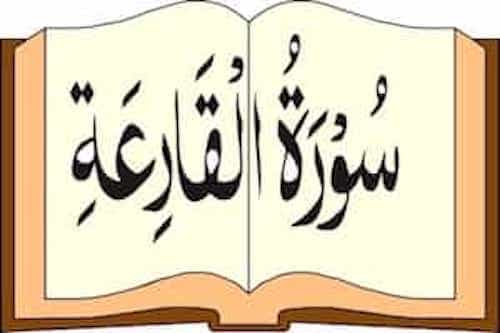 سُوْرَةُ الْقَارِعَةِ